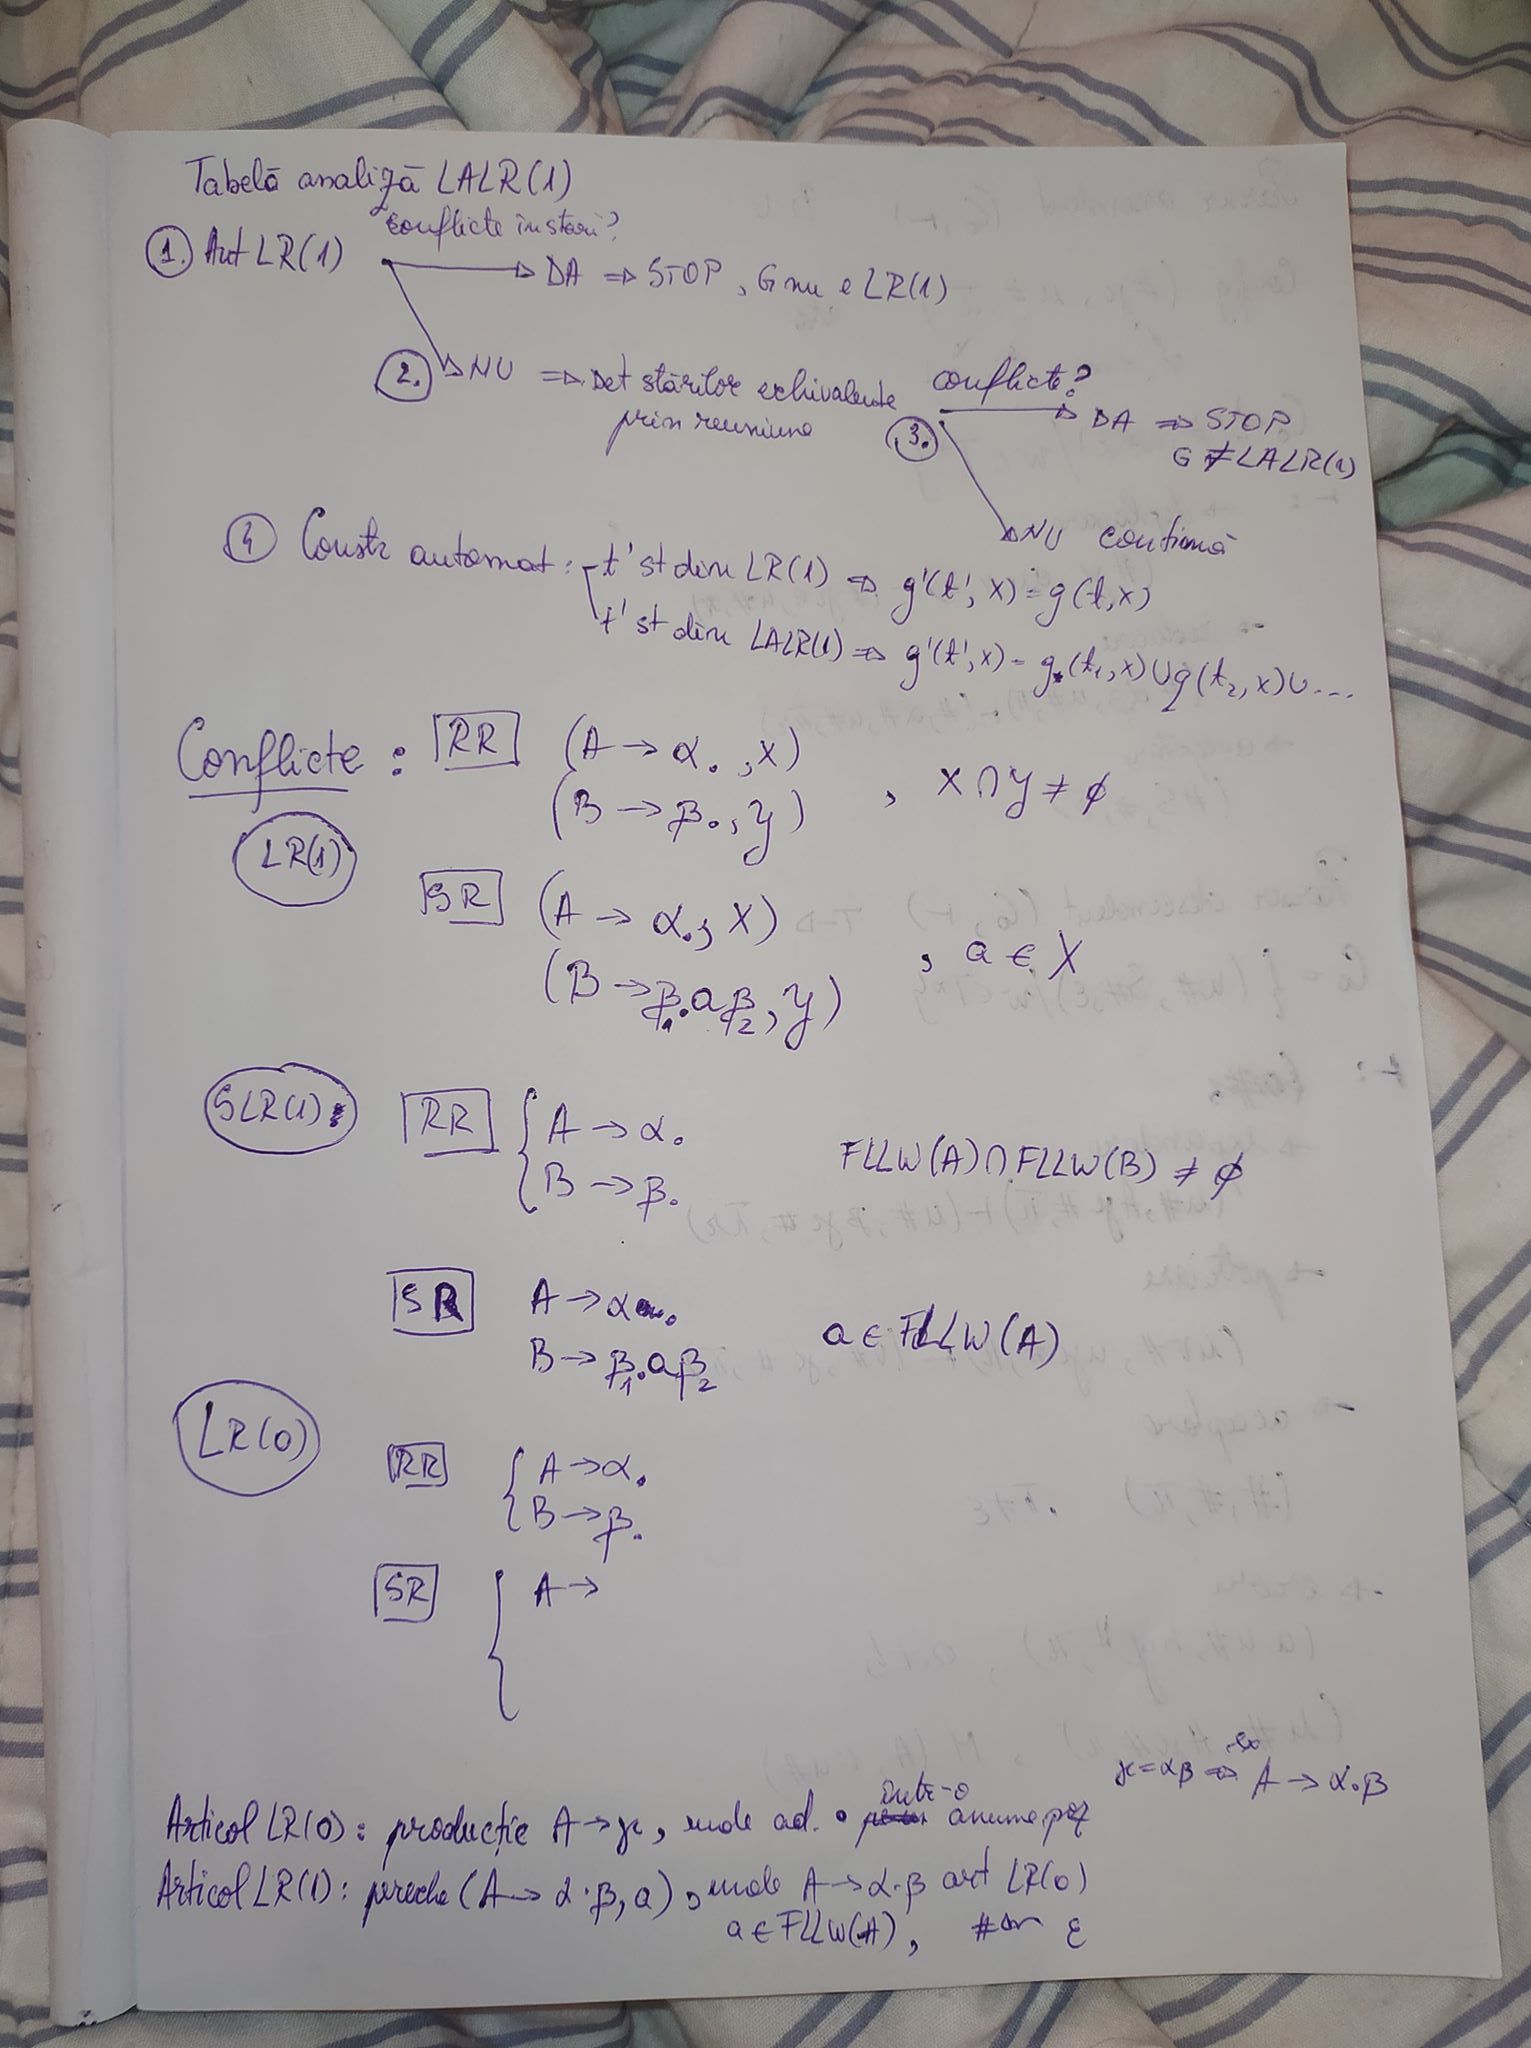 Tabelă analiză LALR(1)
conflicte în stări?
1. Aut LR(1) → DA ⇒ STOP, G nu e LR(1)
2. NU ⇒ Det stărilor echivalente
prin reuniune
conflicte?
3. DA ⇒ STOP
G ≠ LALR(1)
NU continuă
4 Constr automat: t' st din LR(1) ⇒ g'(t', x) = g(t, x)
t' st din LALR(1) ⇒ g'(t', x) = g(t₁, x) ∪ g(t₂, x) ∪ ...
Conflicte : RR (A → α. , X)
(B → β. , Y) , X ∩ Y ≠ ∅
LR(1)
SR (A → α. , X)
(B → β₁.aβ₂, Y) , a ∈ X
SLR(1): RR { A → α.
B → β. FLLW(A) ∩ FLLW(B) ≠ ∅
SR A → α.
B → β₁.aβ₂ a ∈ FLLW(A)
LR(0)
RR { A → α.
B → β.
SR { A →
γ = αβ ⇒ A → α.β
Articol LR(0): producție A → γ, unde ad. • într-o anume poz
Articol LR(1): pereche (A → α.β, a), unde A → α.β art LR(0)
a ∈ FLLW(A), # ε